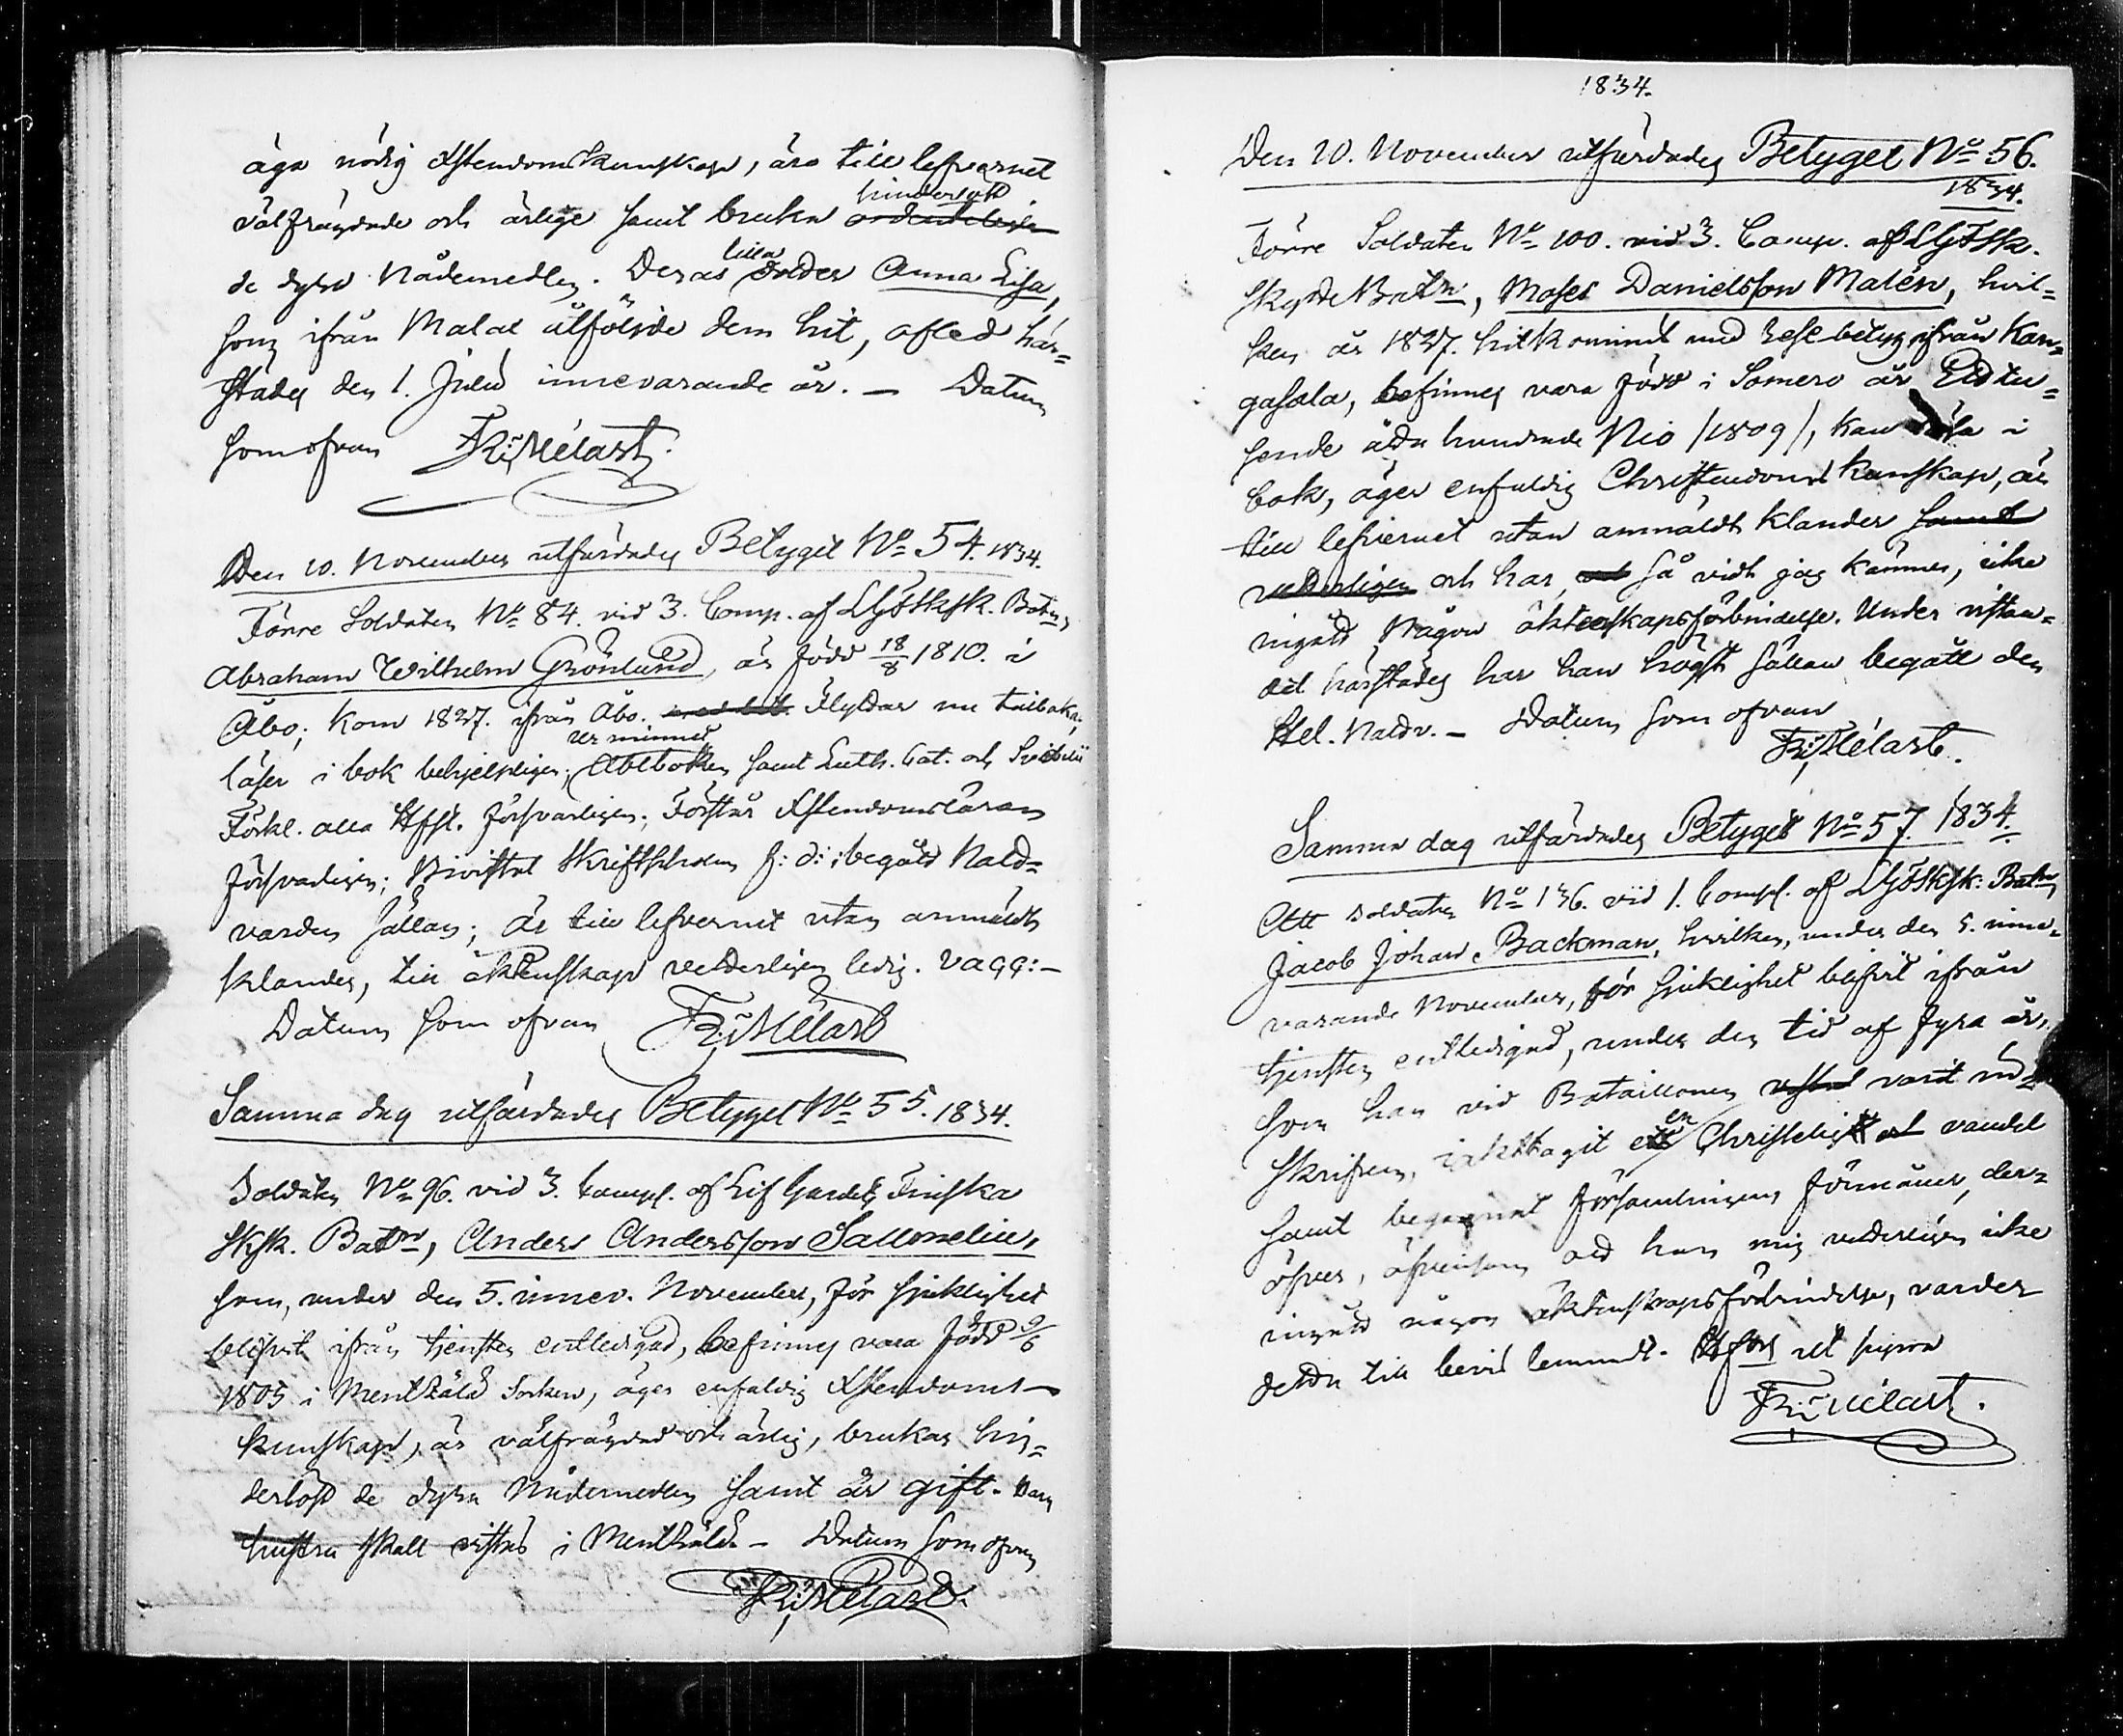 äga nödig Xstendomskunskap, äro till lefvernet
välfrägdade och ärlige samt bruka hinderlöst ordenteligen
de dyra Nådemedlen. Deras lilla dotter Anna Lisa,
som ifrån Malax åtföljde dem hit, afled här=
städes den 1. Julii innevarande år. — Datum
som ofvan FR: Mélart.
Den 10. November utfärdades Betyget No 54. 1834.
Förre Soldaten No 84. vid 3. Comp. af LGFSksk. Batn,
Abraham Wilhelm Grönlund, är född 18/8 1810. i
Åbo; kom 1827. ifrån Åbo. Flyttar nu tillbaka,
läser i bok behjelpligen; ur minnet Abcboken samt Luth. Cat. och Svebilii
Förkl. alla Hfst. försvarligen; Förstår Xstendomsläran
försvarligen; Bivistat Skriftskolan f: ö: ; begått Nattv=
varden sällan; är till lefvernet utan anmäldt
klander, till äktenskap vetterligen ledig. Vacc: —
Datum som ofvan FR: Mélart
Samma dag utfärdades Betyget No 55. 1834.
Soldaten No 96. vid 3. Comp. af Lif Gardets Finska
Sksk. Batn, Anders Andersson Sallmelin,
som, under den 5. innev. November, för sjuklighet
blifvit ifrån tjensten entledigad, befinnes vara född 9/6
1805 i Mentzälä Socken, äger enfaldig Xstendoms
kunskap, är välfrägdad och ärlig, brukar hin=
derlöst de dyra Nådemedlen samt är gift. Hans
hustru skall vistas i Mentzälä. — Datum som ofvan
FR: Mélart.
1834.
Den 10. November utfärdades Betyget No 56.
1834.
Förre Soldaten No 100. vid 3. Comp. af LGFSk.
Skytte Batn, Moses Danielsson Malén, hvil=
ken år 1827. hitkommit med betyg ifrån Kan=
gasala, befinnes vara född i Somero år Ettu=
sende åtta hundrade Nio /1809/, kan läsa i
bok, äger enfaldig Christendoms kunskap, är
till lefvernet utan anmäldt klander samt
vetterligen och har, så vidt jag känner, icke
ingått någon äktenskapsförbindelse. Under vistan=
det härstädes har han högst sällan begått den
Hel. Nattv. — Datum som ofvan
FR: Mélart.
Samma dag utfärdades Betyget No 57. 1834.
Att Soldaten No 136. vid 1. Comp. af LGFSksk. Batn,
Jacob Johan Backman, hvilken, under den 5. inne=
varande November, för sjuklighet blifvit ifrån
tjensten entledigad, under den tid af fyra år,
som han vid Bataillonen vistat varit in=
skrifven, iakttagit en Christelig vandel
samt begagnat församlingens förmåner, der=
öfver, äfvensom att han mig vetterligen icke
ingått någon äktenskapsförbindelse, varder
detta till bevis lemnadt. Hfors ut supra
FR: Mélart.